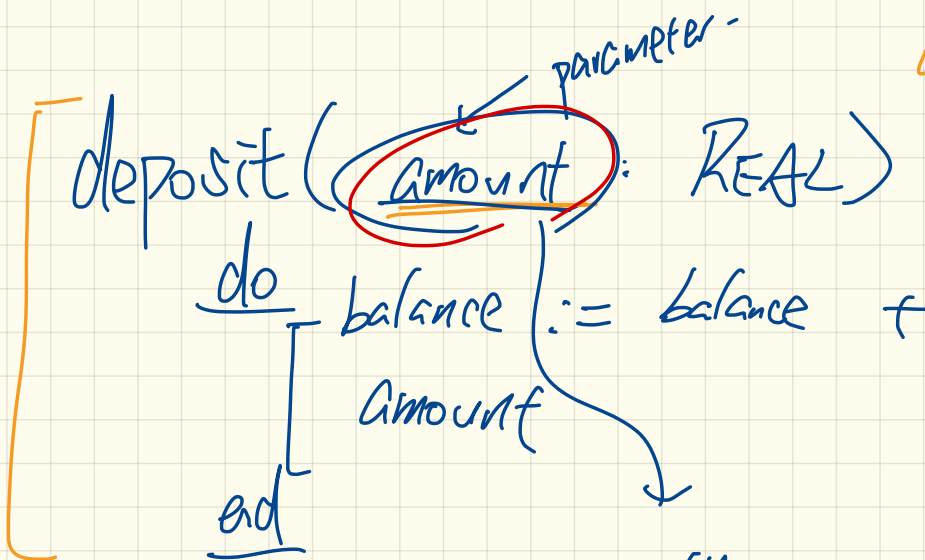 parameter
deposit(amount: REAL)
do
balance := balance +
amount
end